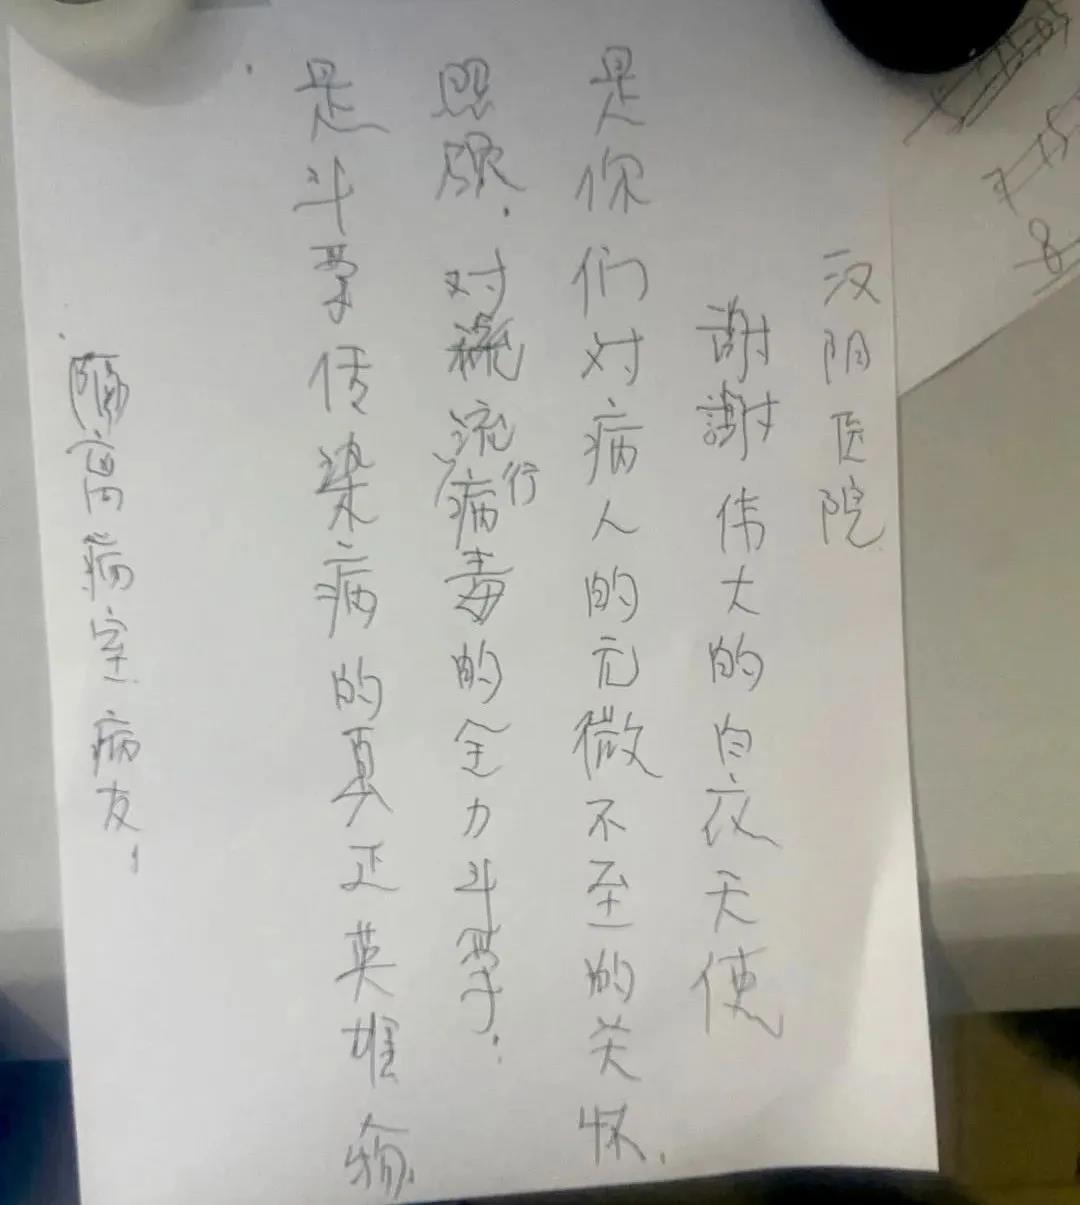 汉阴医院
謝謝伟大的白衣天使
是你们对病人的无微不至的关怀.
照顾.对流行病毒的全力斗争.
是斗争传染病的真正英雄
隔离病室病友.